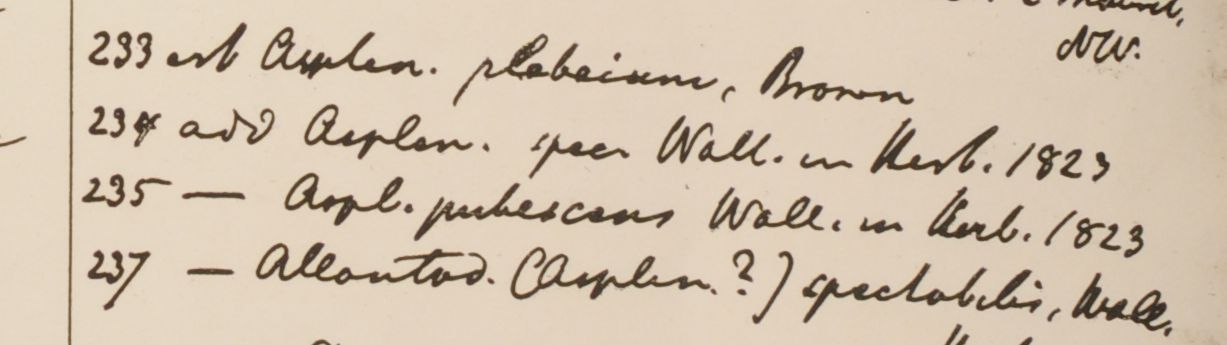 NW.
233 est Asplen. plebeium, Brown
234 add Asplen. spec Wall. in Herb. 1823
235 — Aspl. pubescens Wall. in Herb. 1823
237 — Allantod. (Asplen.?) spectabilis, Wall.